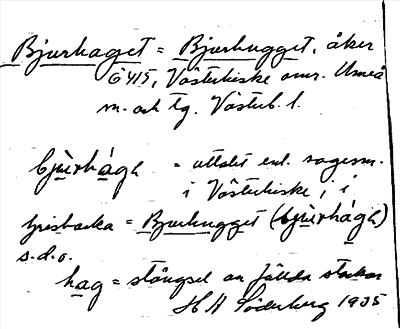 Bjurhaget = Bjurhugget, åker
6415, Västerhiske omr. Umeå
m. och tg. Västerb. l.
bjùrhágk = uttalet enl. sagesm.
i Västerhiske; i
Grisbacka = Bjurhugget (bjùrhágk)
s.d.o.
hag = stängsel av fällda stockar
H A Söderberg 1935